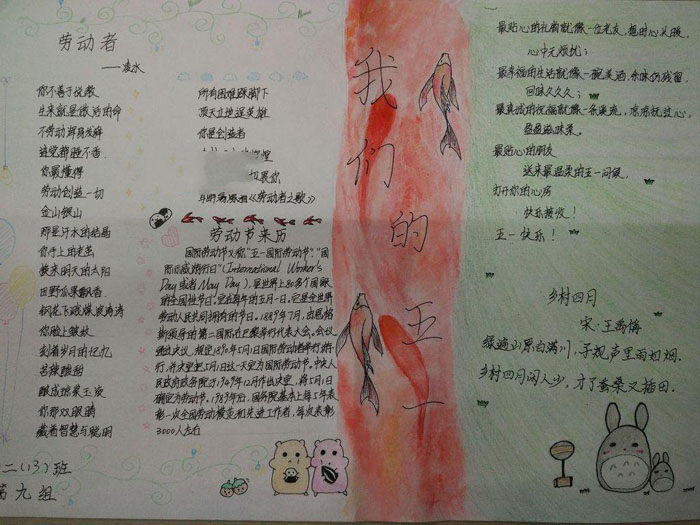 劳动者
——凌水
你不善于说教
生来就是做活的命
不劳动浑身发痒
连觉都睡不香
你最懂得
劳动创造一切
金山银山
那是汗水的结晶
你手上的老茧
换来明天的太阳
田野瓜果飘香
钢花飞溅爆浪滔滔
你脸上皱纹
刻着岁月的记忆
苦辣酸甜
酿成琼浆玉液
你那双眼睛
藏着智慧与聪明
二(13)班
第九组
所有困难踩脚下
顶天立地逞英雄
你是创造者
《劳动者之歌》
劳动节来历
国际劳动节又称"五一国际劳动节""国
际示威游行日"(International Worker's
Day或者May Day),是世界上80多个国家
的全国性节日。定在每年的五月一日。它是全世界
劳动人民共同拥有的节日。1889年7月,由恩格
斯领导的第二国际在巴黎举行代表大会。会议
通过决议,规定1890年5月1日国际劳动者举行游
行,并决定把5月1日这一天定为国际劳动节。中央人
民政府政务院于1949年12月作出决定,将5月1日
确定为劳动节。1989年后,国务院基本上每5年表
彰一次全国劳动模范和先进工作者,每次表彰
3000人左右
我们的五一
最贴心的礼物就像一位老友,想时心头暖,
心中无烦忧;
最幸福的生活就像一碗美酒,余味仍残留
回味久久久;
最真诚的祝福就像一条溪流,凉凉抚过心,
盈盈溢味美。
最贴心的朋友
送来最温柔的五一问候,
打开你的心房
快乐接收!
五一快乐!
乡村四月
宋·王禹偁
绿遍山原白满川,子规声里雨如烟。
乡村四月闲人少,才了蚕桑又插田。